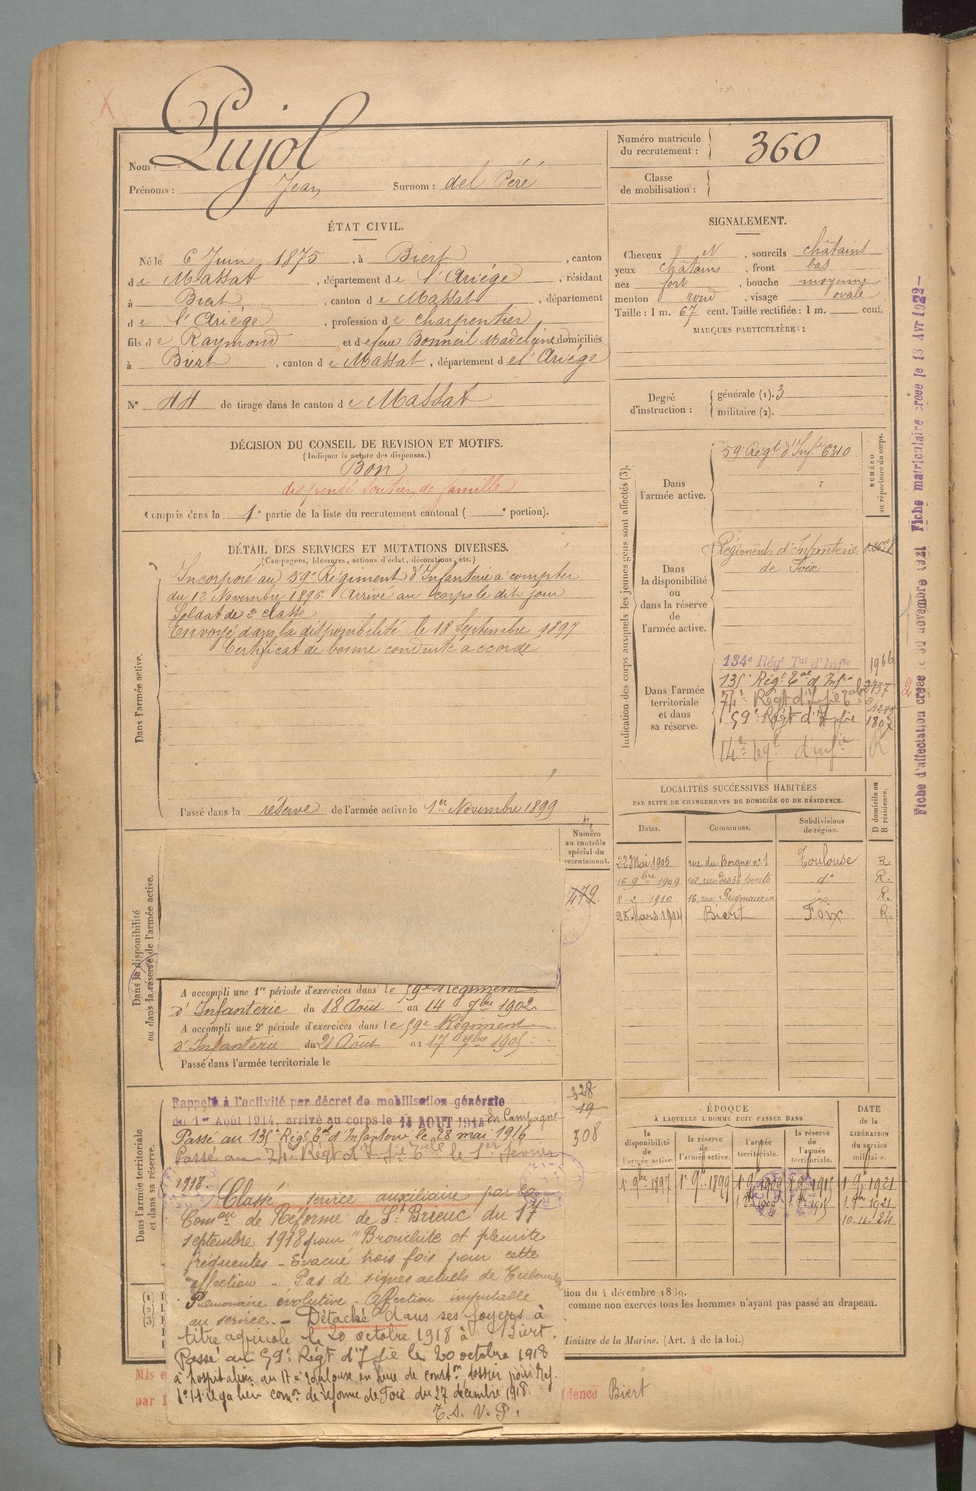 Nom : Pujol
Prénoms : Jean Surnom : del Péré
Numéro matricule du recrutement : 360
Classe de mobilisation :
ÉTAT CIVIL.
Né le 6 Juin 1875, à Biert, canton
de Massat, département de l'Ariège, résidant
à Biert, canton de Massat, département
de l'Ariège, profession de charpentier
fils de Raymond et de feue Bonneil Madeleine domiciliés
à Biert, canton de Massat, département de l'Ariège
N° 44 de tirage dans le canton de Massat
SIGNALEMENT.
Cheveux N, sourcils châtains
yeux châtains, front bas
nez fort, bouche moyenne
menton rond, visage ovale
Taille : 1 m. 67 cent. Taille rectifiée : 1 m. cent.
MARQUES PARTICULIÈRES :
Degré d'instruction : générale (1). 3
militaire (2).
DÉCISION DU CONSEIL DE REVISION ET MOTIFS.
(Indiquer la nature des dispenses.)
Bon
dispensé soutien de famille
Compris dans la 1e partie de la liste du recrutement cantonal ( e portion).
DÉTAIL DES SERVICES ET MUTATIONS DIVERSES.
(Campagnes, blessures, actions d'éclat, décorations, etc.)
Dans l'armée active.
Incorporé au 59e Régiment d'Infanterie à compter
du 13 Novembre 1896. Arrivé au corps le dit jour
Soldat de 2e classe
Envoyé dans la disponibilité le 18 Septembre 1897
Certificat de bonne conduite accordé
Passé dans la réserve de l'armée active le 1er Novembre 1899
Indication des corps auxquels les jeunes gens sont affectés (3).
NUMÉRO au répertoire du corps.
Dans l'armée active.
59e Régt d'Infie 6310
Dans la disponibilité ou dans la réserve de l'armée active.
Régiment d'Infanterie
de Foix
Dans l'armée territoriale et dans sa réserve.
134e Régt Tal d'Infie
135e Régt Tal d'Infie
74e Régt d'Infie Tale
59e Régt d'Infie 1807
14e Régt d'Infie R
LOCALITÉS SUCCESSIVES HABITÉES
PAR SUITE DE CHANGEMENTS DE DOMICILE OU DE RÉSIDENCE.
Dates. Communes. Subdivisions de région. D domicile ou R résidence.
22 Mai 1905 rue du Borgne n° 1 Toulouse R
16 9bre 1909 102, rue des 36 ponts do R.
8-2-1910 16, rue Peymaurin R.
28 Mars 1914 Biert Foix R.
Numéro au contrôle spécial du recrutement.
479
Dans la disponibilité ou dans la réserve de l'armée active.
A accompli une 1re période d'exercices dans le 59e Régiment
d'Infanterie du 18 Août au 14 7bre 1902
A accompli une 2e période d'exercices dans le 59e Régiment
d'Infanterie du 21 Août au 17 7bre 1905
Passé dans l'armée territoriale le
Dans l'armée territoriale et dans sa réserve.
328
19
308
Rappelé à l'activité par décret de mobilisation générale
du 1er Août 1914, arrivé au corps le 14 AOUT 1914 En Campagne
Passé au 135e Régt Tal d'Infanterie le 28 mai 1916
Passé au 74e Régt d'Infie Tale le 1er février
1918.
Classé service auxiliaire par la
Comon de Réforme de St Brieuc du 17
septembre 1918 pour "Bronchite et pleurite
fréquentes - Evacué trois fois pour cette
affection - Pas de signes actuels de Tuberculose
Pulmonaire évolutive. Affection imputable
au service. - Détaché dans ses foyers à
titre agricole le 20 octobre 1918 à Biert.
Passé au 59e Régt d'Infie le 20 octobre 1918
T. S. V. P.
ÉPOQUE
À LAQUELLE L'HOMME DOIT PASSER DANS
la disponibilité de l'armée active. la réserve de l'armée active. l'armée territoriale. la réserve de l'armée territoriale. DATE DE LA LIBÉRATION du service militaire.
1er 9bre 1897 1er 9bre 1899 1er 9bre 1909 1er 9bre 1915 1er 9bre 1921
1er 8bre 1921
10-11-24
comme non exercés tous les hommes n'ayant pas passé au drapeau.
Ministre de la Marine. (Art. 4 de la loi.)
Biert
Fiche d'affectation créée le 30 novembre 1921 Fiche matriculaire créée le 18 Avr 1922